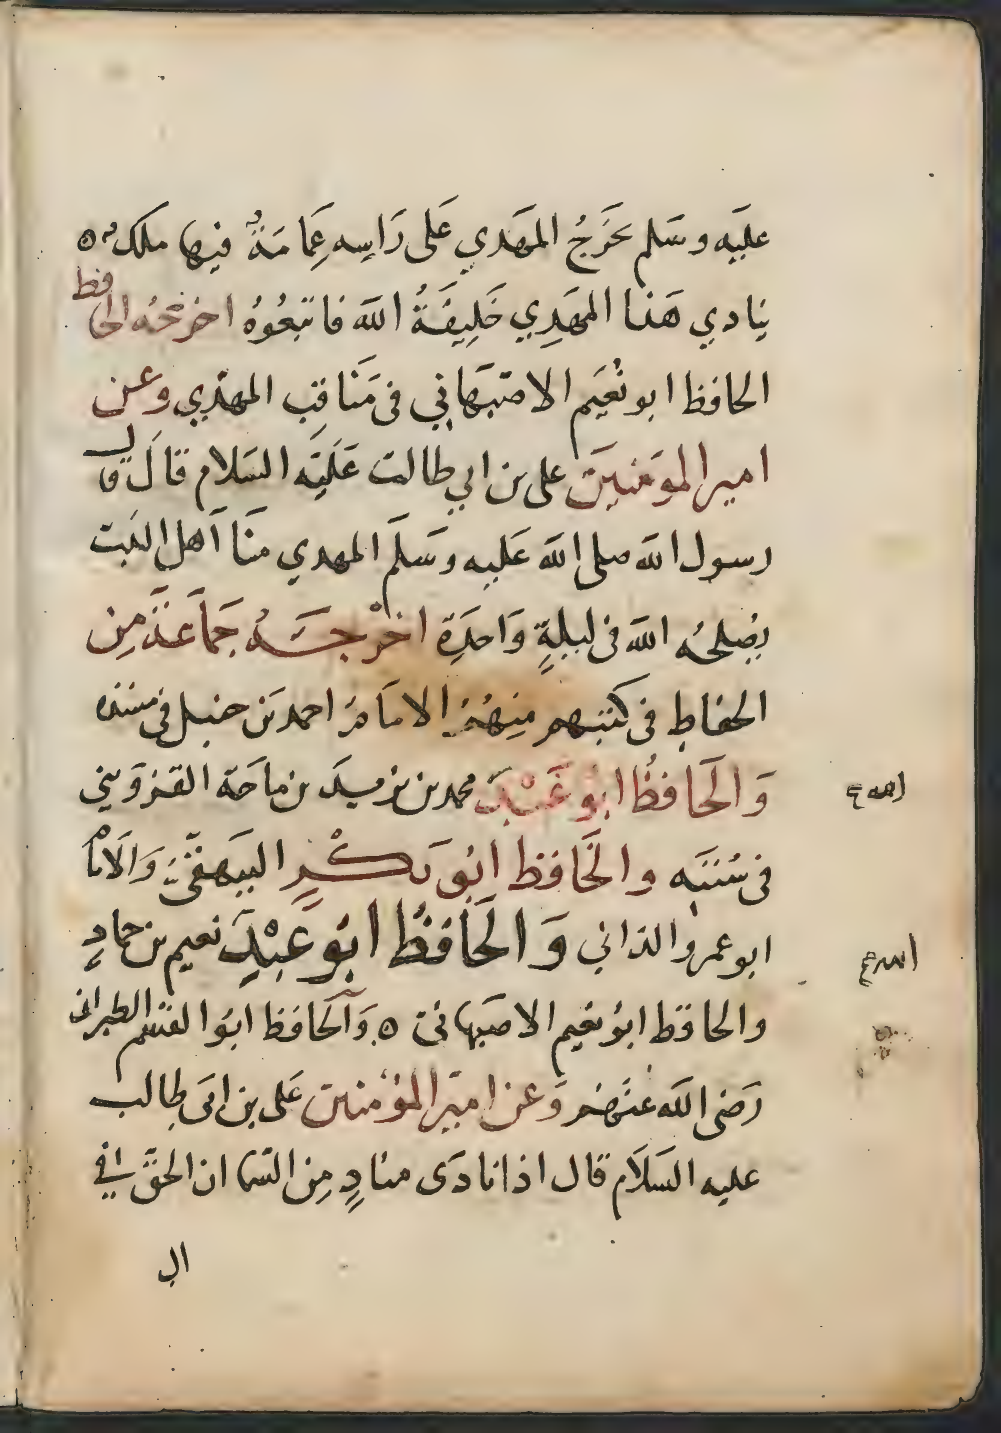 عليه وسلم يخرج المهدي على راسه عمامة فيها ملك ه
ينادي هذا المهدي خليفة الله فاتبعوه اخرجه الحافظ
الحافظ ابو نعيم الاصبهاني في مناقب المهدي وعن
امير المومنين على بن ابي طالب عليه السلام قال قال
رسول الله صلى الله عليه وسلم المهدي منا اهل البيت
يصلحه الله في ليلة واحدة اخرجه جماعة من
الحفاظ في كتبهم منهم الامام احمد بن حنبل في مسنده
والحافظ ابو عبد محمد بن يزيد بن ماجة القزويني
في سننه والحافظ ابو بكر البيهقي والاما
ابو عمرو الداني والحافظ ابو عبد نعيم بن حماد
والحافظ ابو نعيم الاصبهاني ه والحافظ ابو القسم الطبراني
رضى الله عنهم وعن امير المؤمنين على بن ابي طالب
عليه السلام قال اذا نادى مناد من السما ان الحق في
ال